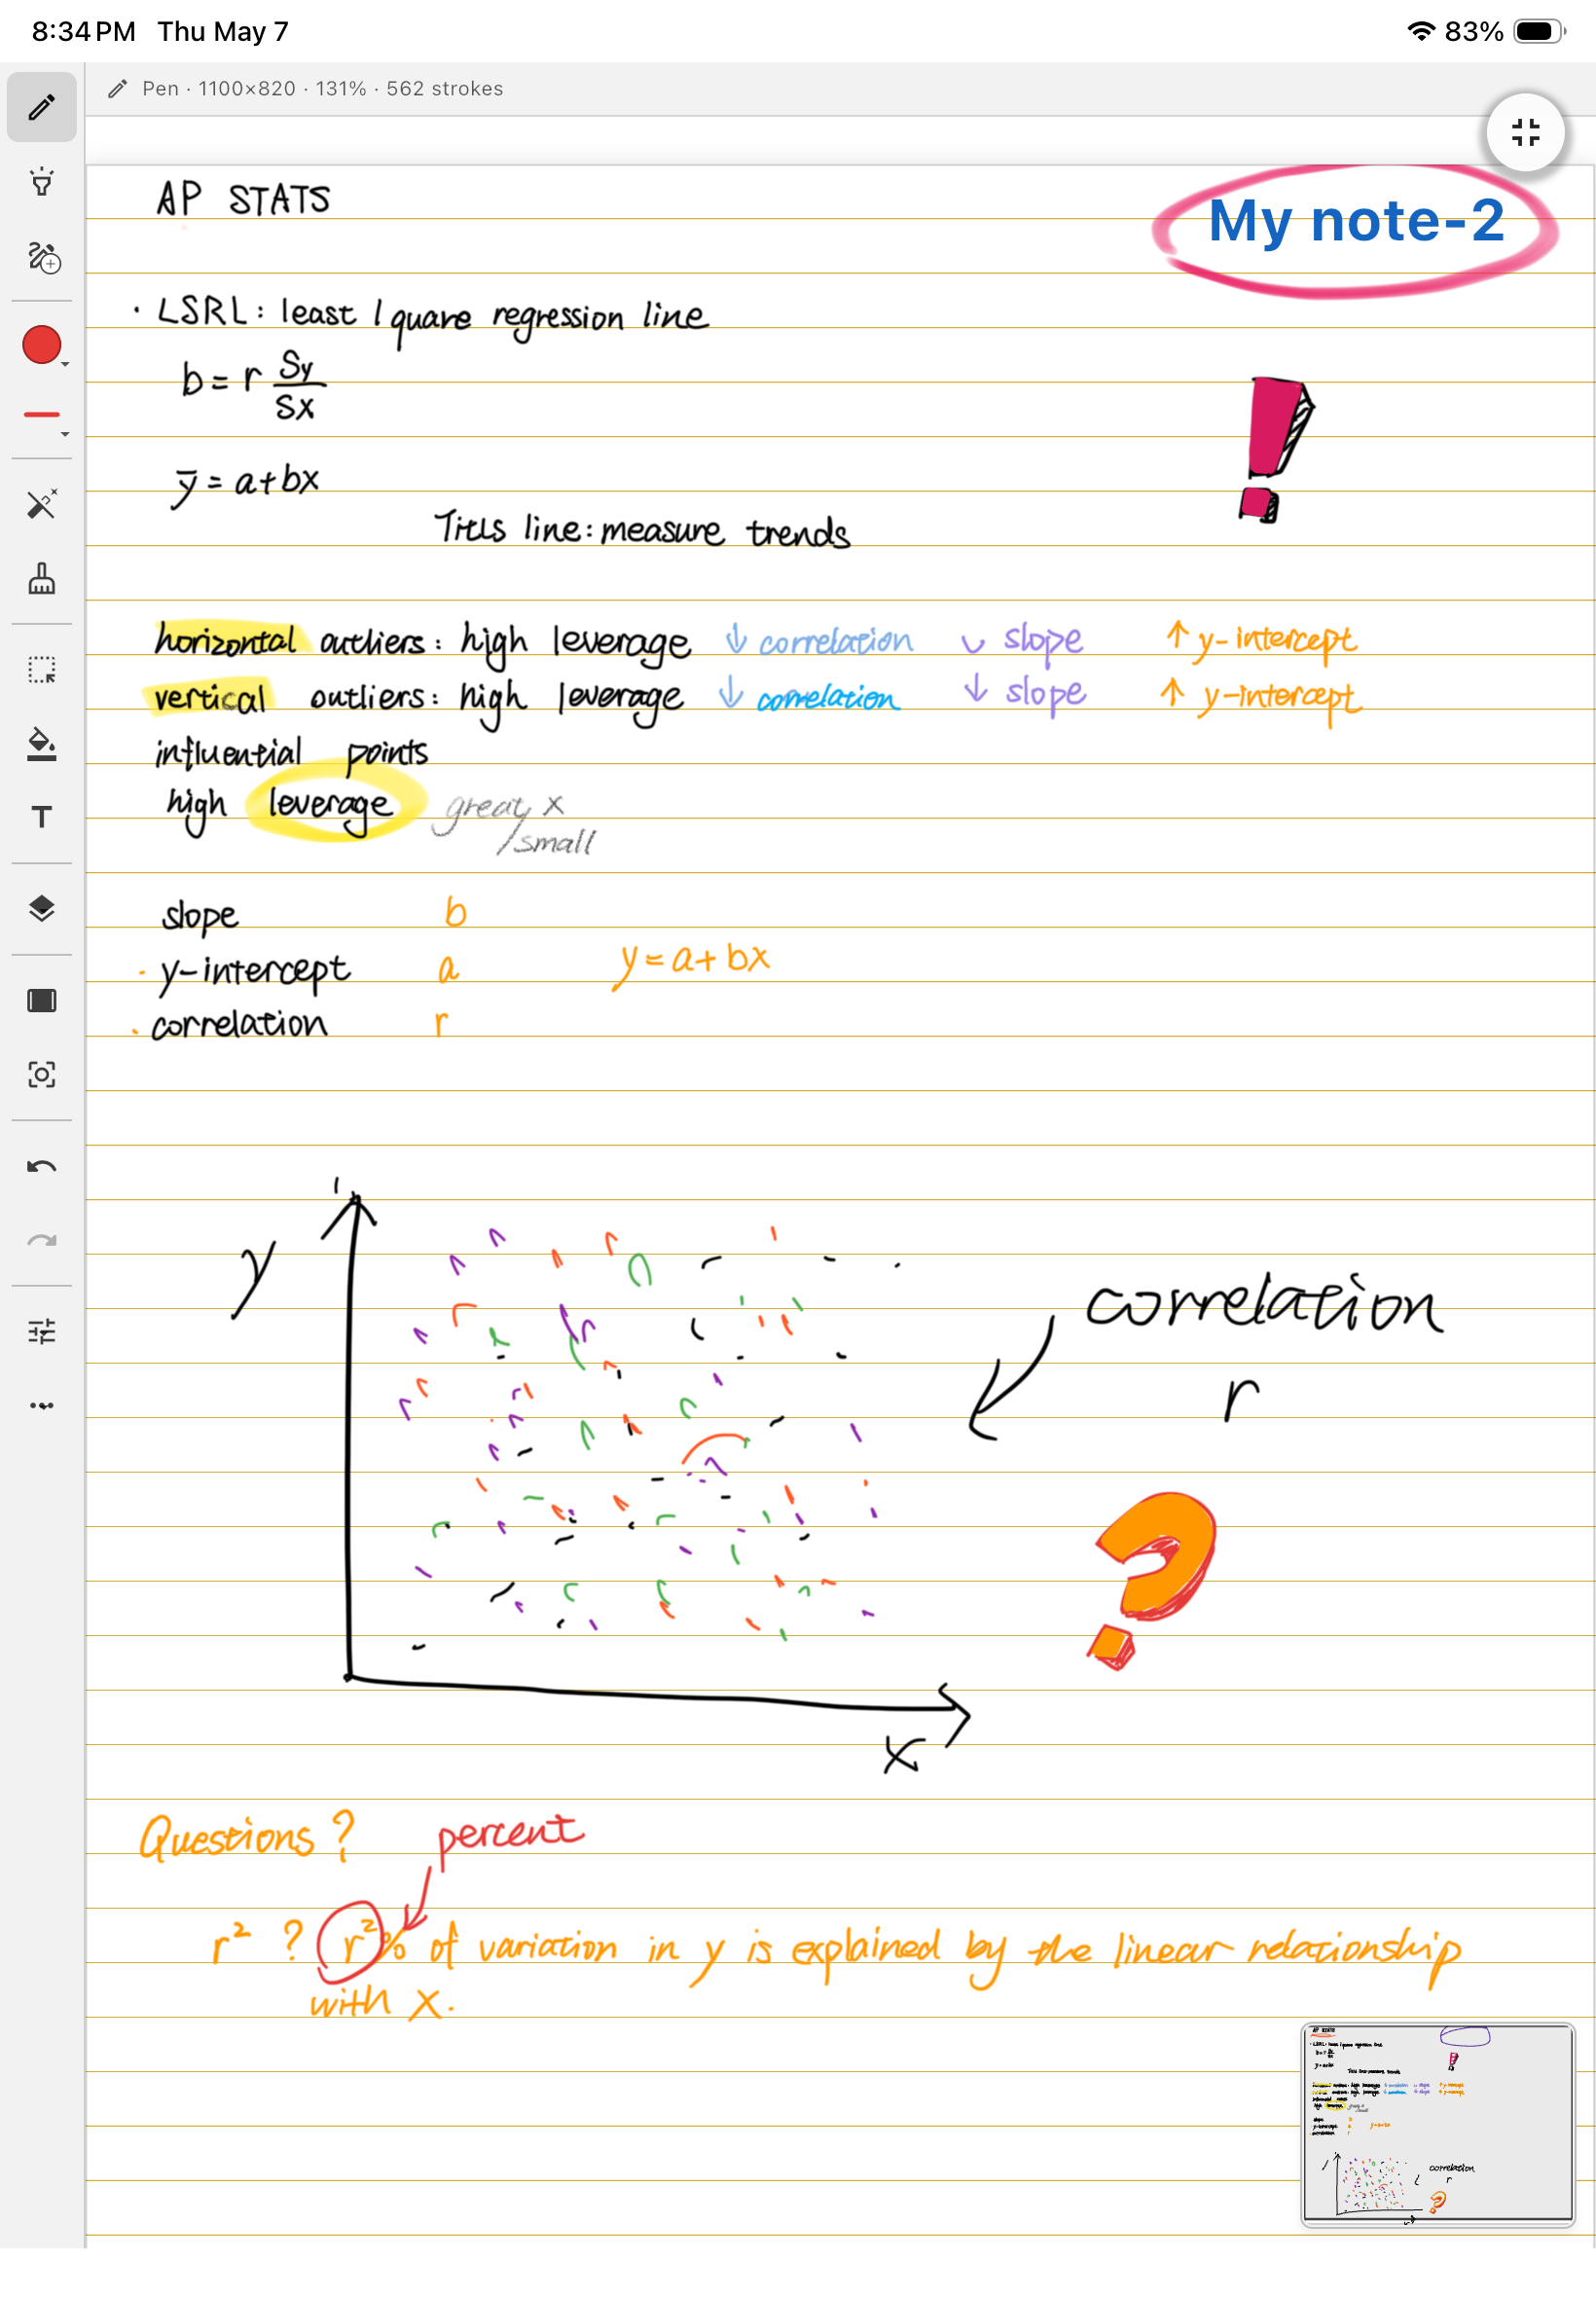 8:34 PM Thu May 7 83%
Pen · 1100×820 · 131% · 562 strokes
AP STATS
My note-2
· LSRL: least square regression line
b = r Sy/Sx
y̅ = a+bx
line: measure trends
horizontal outliers: high leverage ↓ correlation slope ↑ y-intercept
vertical outliers: high leverage ↓ correlation ↓ slope ↑ y-intercept
influential points
high leverage great x
/small
slope b
· y-intercept a y = a+bx
· correlation r
y
correlation
r
?
x
Questions? percent
r² ? r²% of variation in y is explained by the linear relationship
with x.